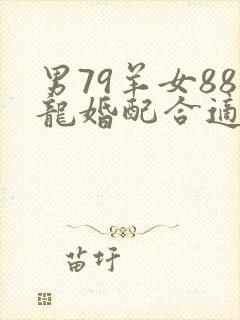 男79羊女88
龍婚配合適
苗圩